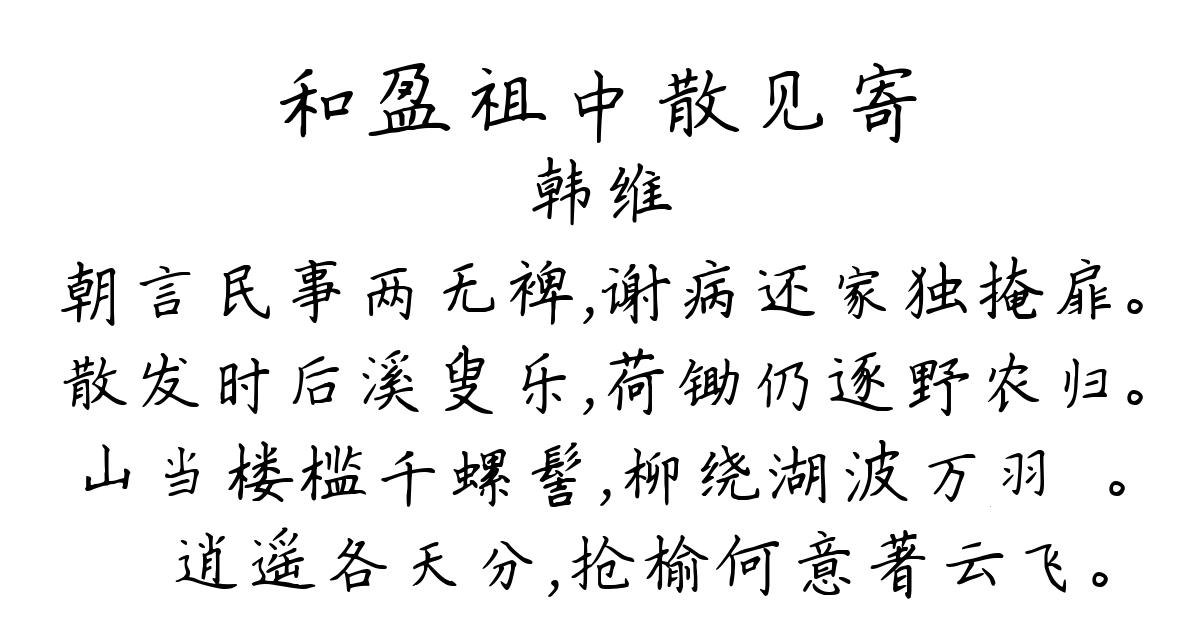 和盈祖中散见寄
韩维
朝言民事两无裨,谢病还家独掩扉。
散发时后溪叟乐,荷锄仍逐野农归。
山当楼槛千螺髻,柳绕湖波万羽 。
逍遥各天分,抢榆何意著云飞。